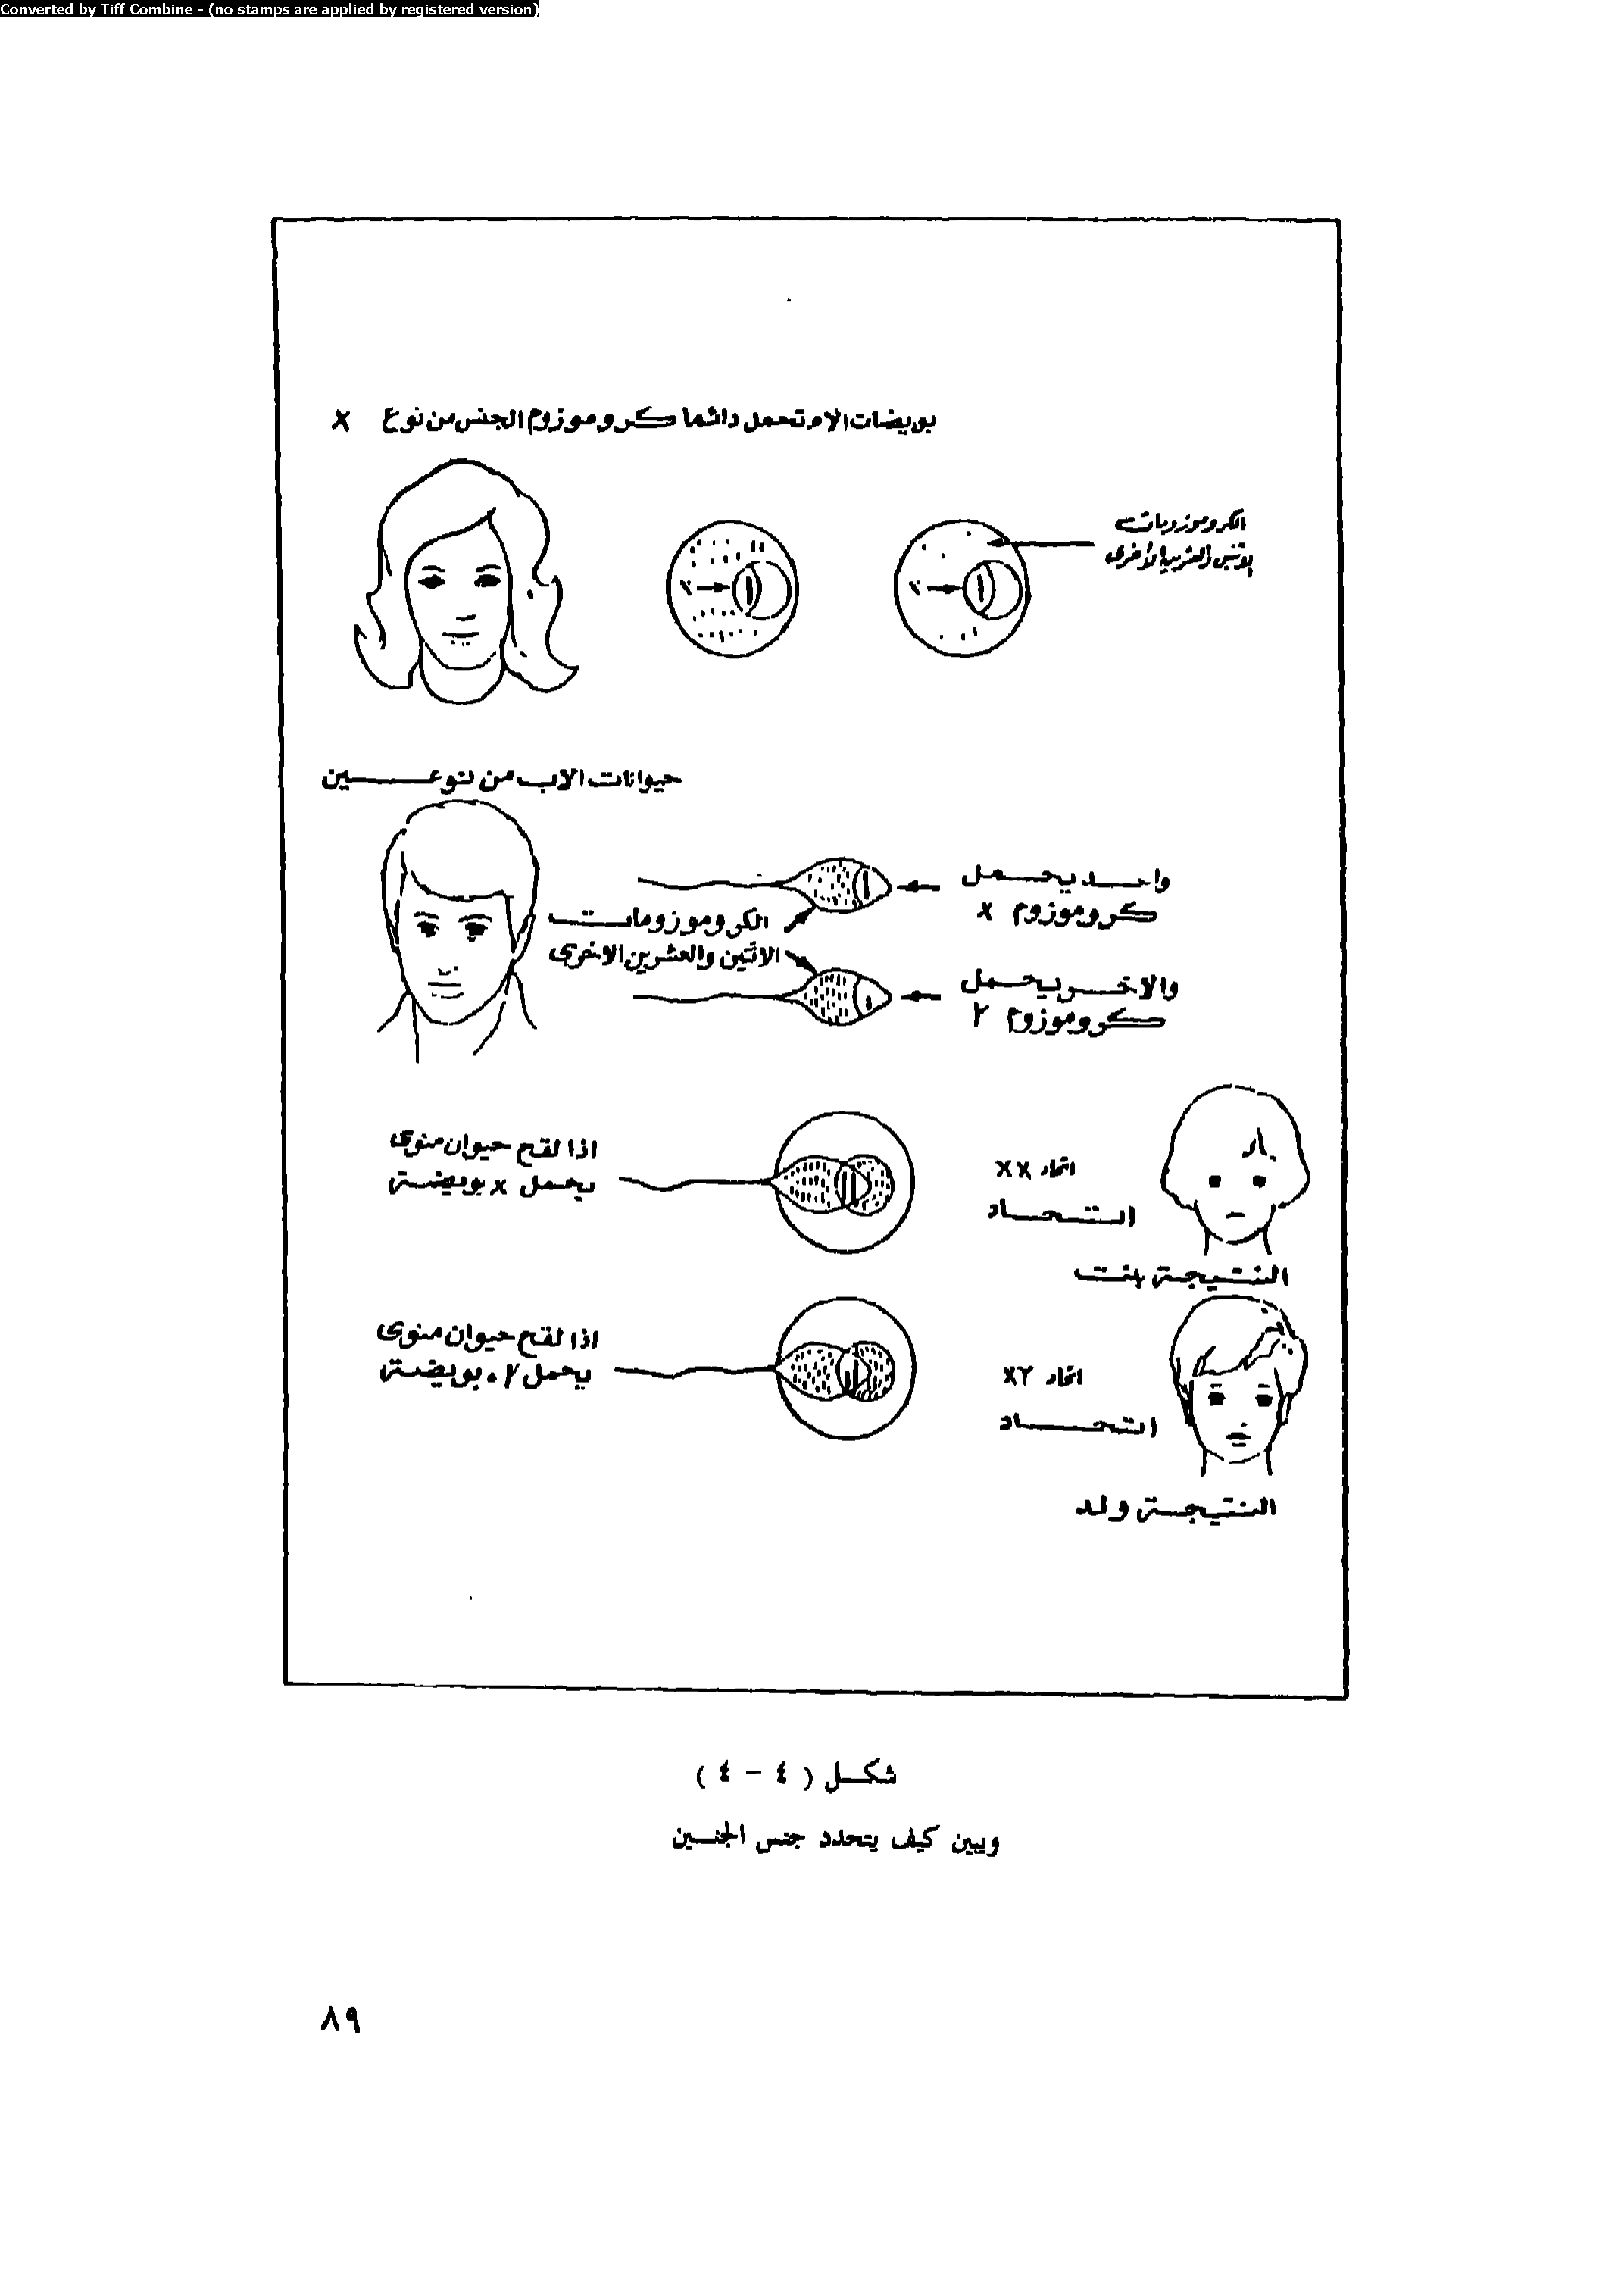 Converted by Tiff Combine - (no stamps are applied by registered version)
بويضات الام تحمل دائما كروموزوم الجنس من نوع X
الكروموزومات
الاثنين والعشرين الأخرى
X
X
حيوانات الاب من نوعـــين
واحد يحمل
كروموزوم X
الكروموزومات
الاثنين والعشرين الاخرى
والاخر يحمل
كروموزوم Y
اذا لقح حيوان منوى
يحمل X بويضة
اتحاد XX
اتحاد
النتيجة بنت
اذا لقح حيوان منوى
يحمل Y بويضة
اتحاد XY
اتحاد
النتيجة ولد
شكل ( ٤ - ٤ )
ويبين كيف يتحدد جنس الجنين
٨٩